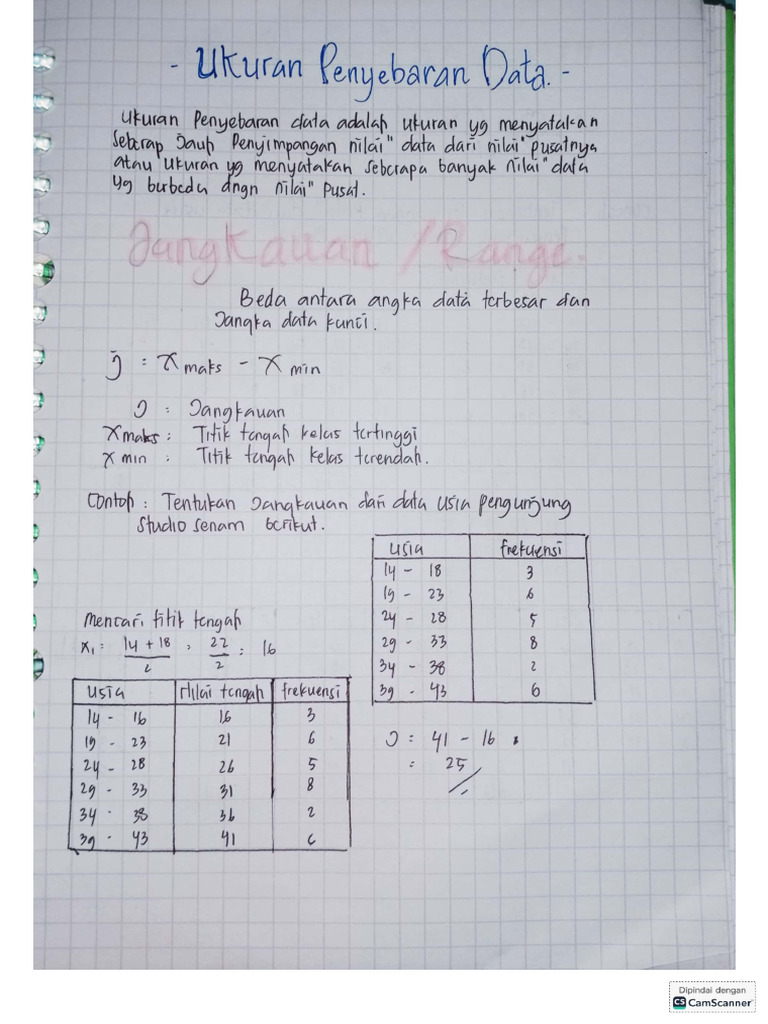 - Ukuran Penyebaran Data. -
Ukuran Penyebaran data adalah ukuran yg menyatakan
Seberap Jauh Penyimpangan nilai" data dari nilai" pusatnya
atau ukuran yg menyatakan seberapa banyak nilai" data
yg berbeda dngn nilai" pusat.
Jangkauan / Range.
Beda antara angka data terbesar dan
Jangka data kunci.
J = X maks - X min
J : Jangkauan
X maks : Titik tengah kelas tertinggi
X min : Titik tengah kelas terendah.
Contoh : Tentukan Jangkauan dari data usia pengunjung
Studio senam berikut.
Usia frekuensi
14 - 18 3
19 - 23 6
24 - 28 5
29 - 33 8
34 - 38 2
39 - 43 6
mencari titik tengah
x₁ = 14 + 18 / 2 = 22 / 2 = 16
usia Nilai tengah frekuensi
14 - 16 16 3
19 - 23 21 6
24 - 28 26 5
29 - 33 31 8
34 - 38 36 2
39 - 43 41 6
J = 41 - 16
= 25
Dipindai dengan
CS CamScanner